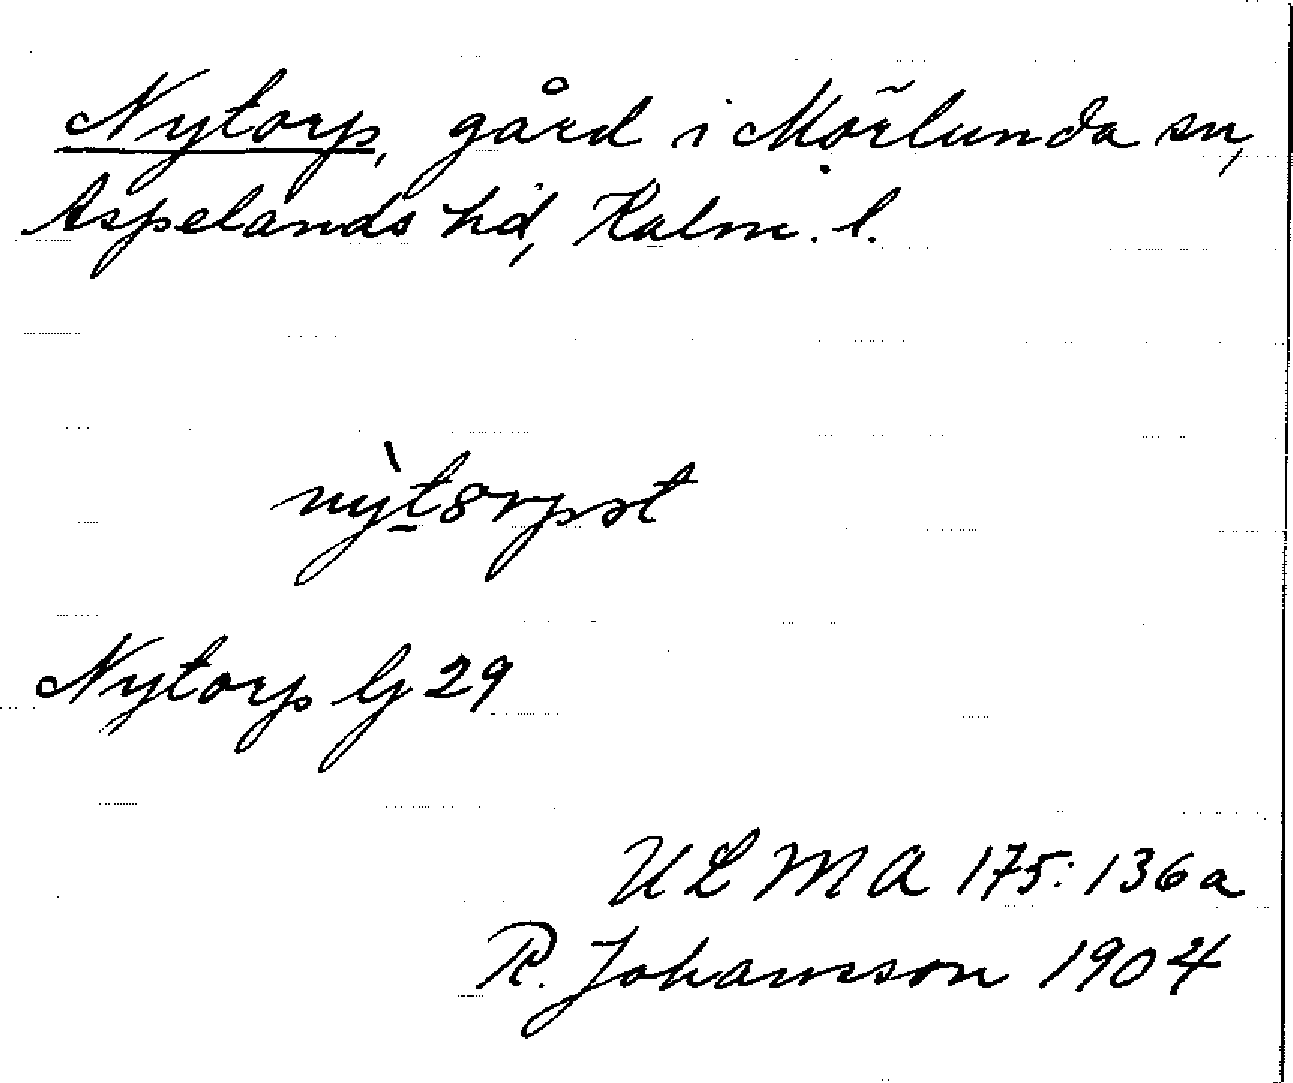 Nytorp, gård i Mörlunda sn,
Aspelands hd, Kalm. l.
Nytorp G 29
ULMA 175:136a
R. Johansson 1904